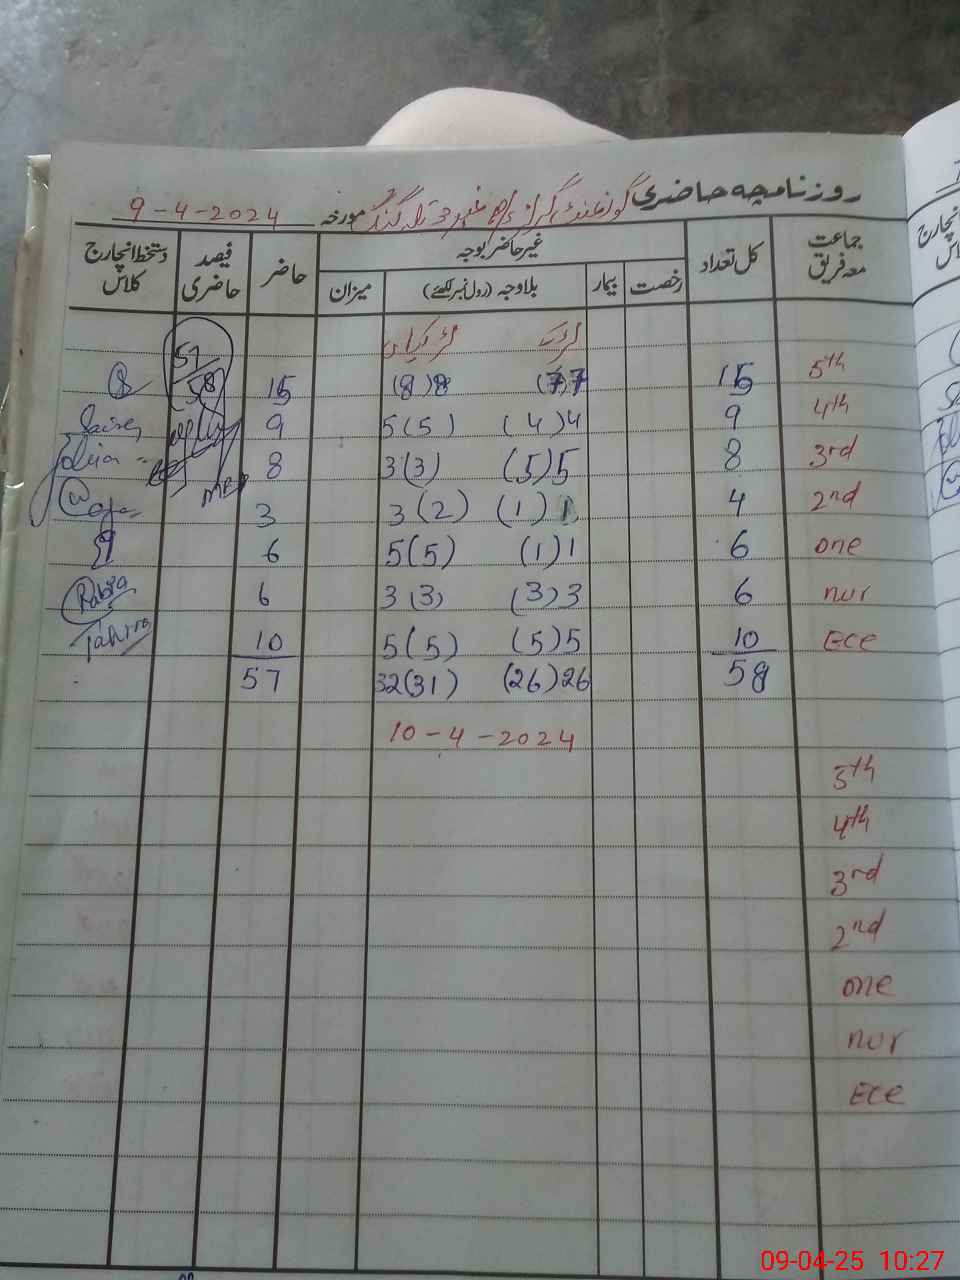 روزنامچہ حاضری گورنمنٹ گرلز نمبر 3 تلہ گنگ مورخہ 9-4-2024
جماعت معہ فریق کل تعداد غیر حاضر بوجہ حاضر فیصد حاضری دستخط انچارج کلاس
رخصت بیمار بلاوجہ (رول نمبر لکھئے) میزان
لڑکے لڑکیاں
57
58
5th 15 (7)7 (8)8 15
4th 9 (4)4 5(5) 9
3rd 8 (5)5 3(3) 8
2nd 4 (1)1 3(2) 3
one 6 (1)1 5(5) 6
nur 6 (3)3 3(3) 6 Rabia
ECE 10 (5)5 5(5) 10 Tahira
58 (26)26 32(31) 57
10-4-2024
5th
4th
3rd
2nd
one
nur
ECE
09-04-25 10:27